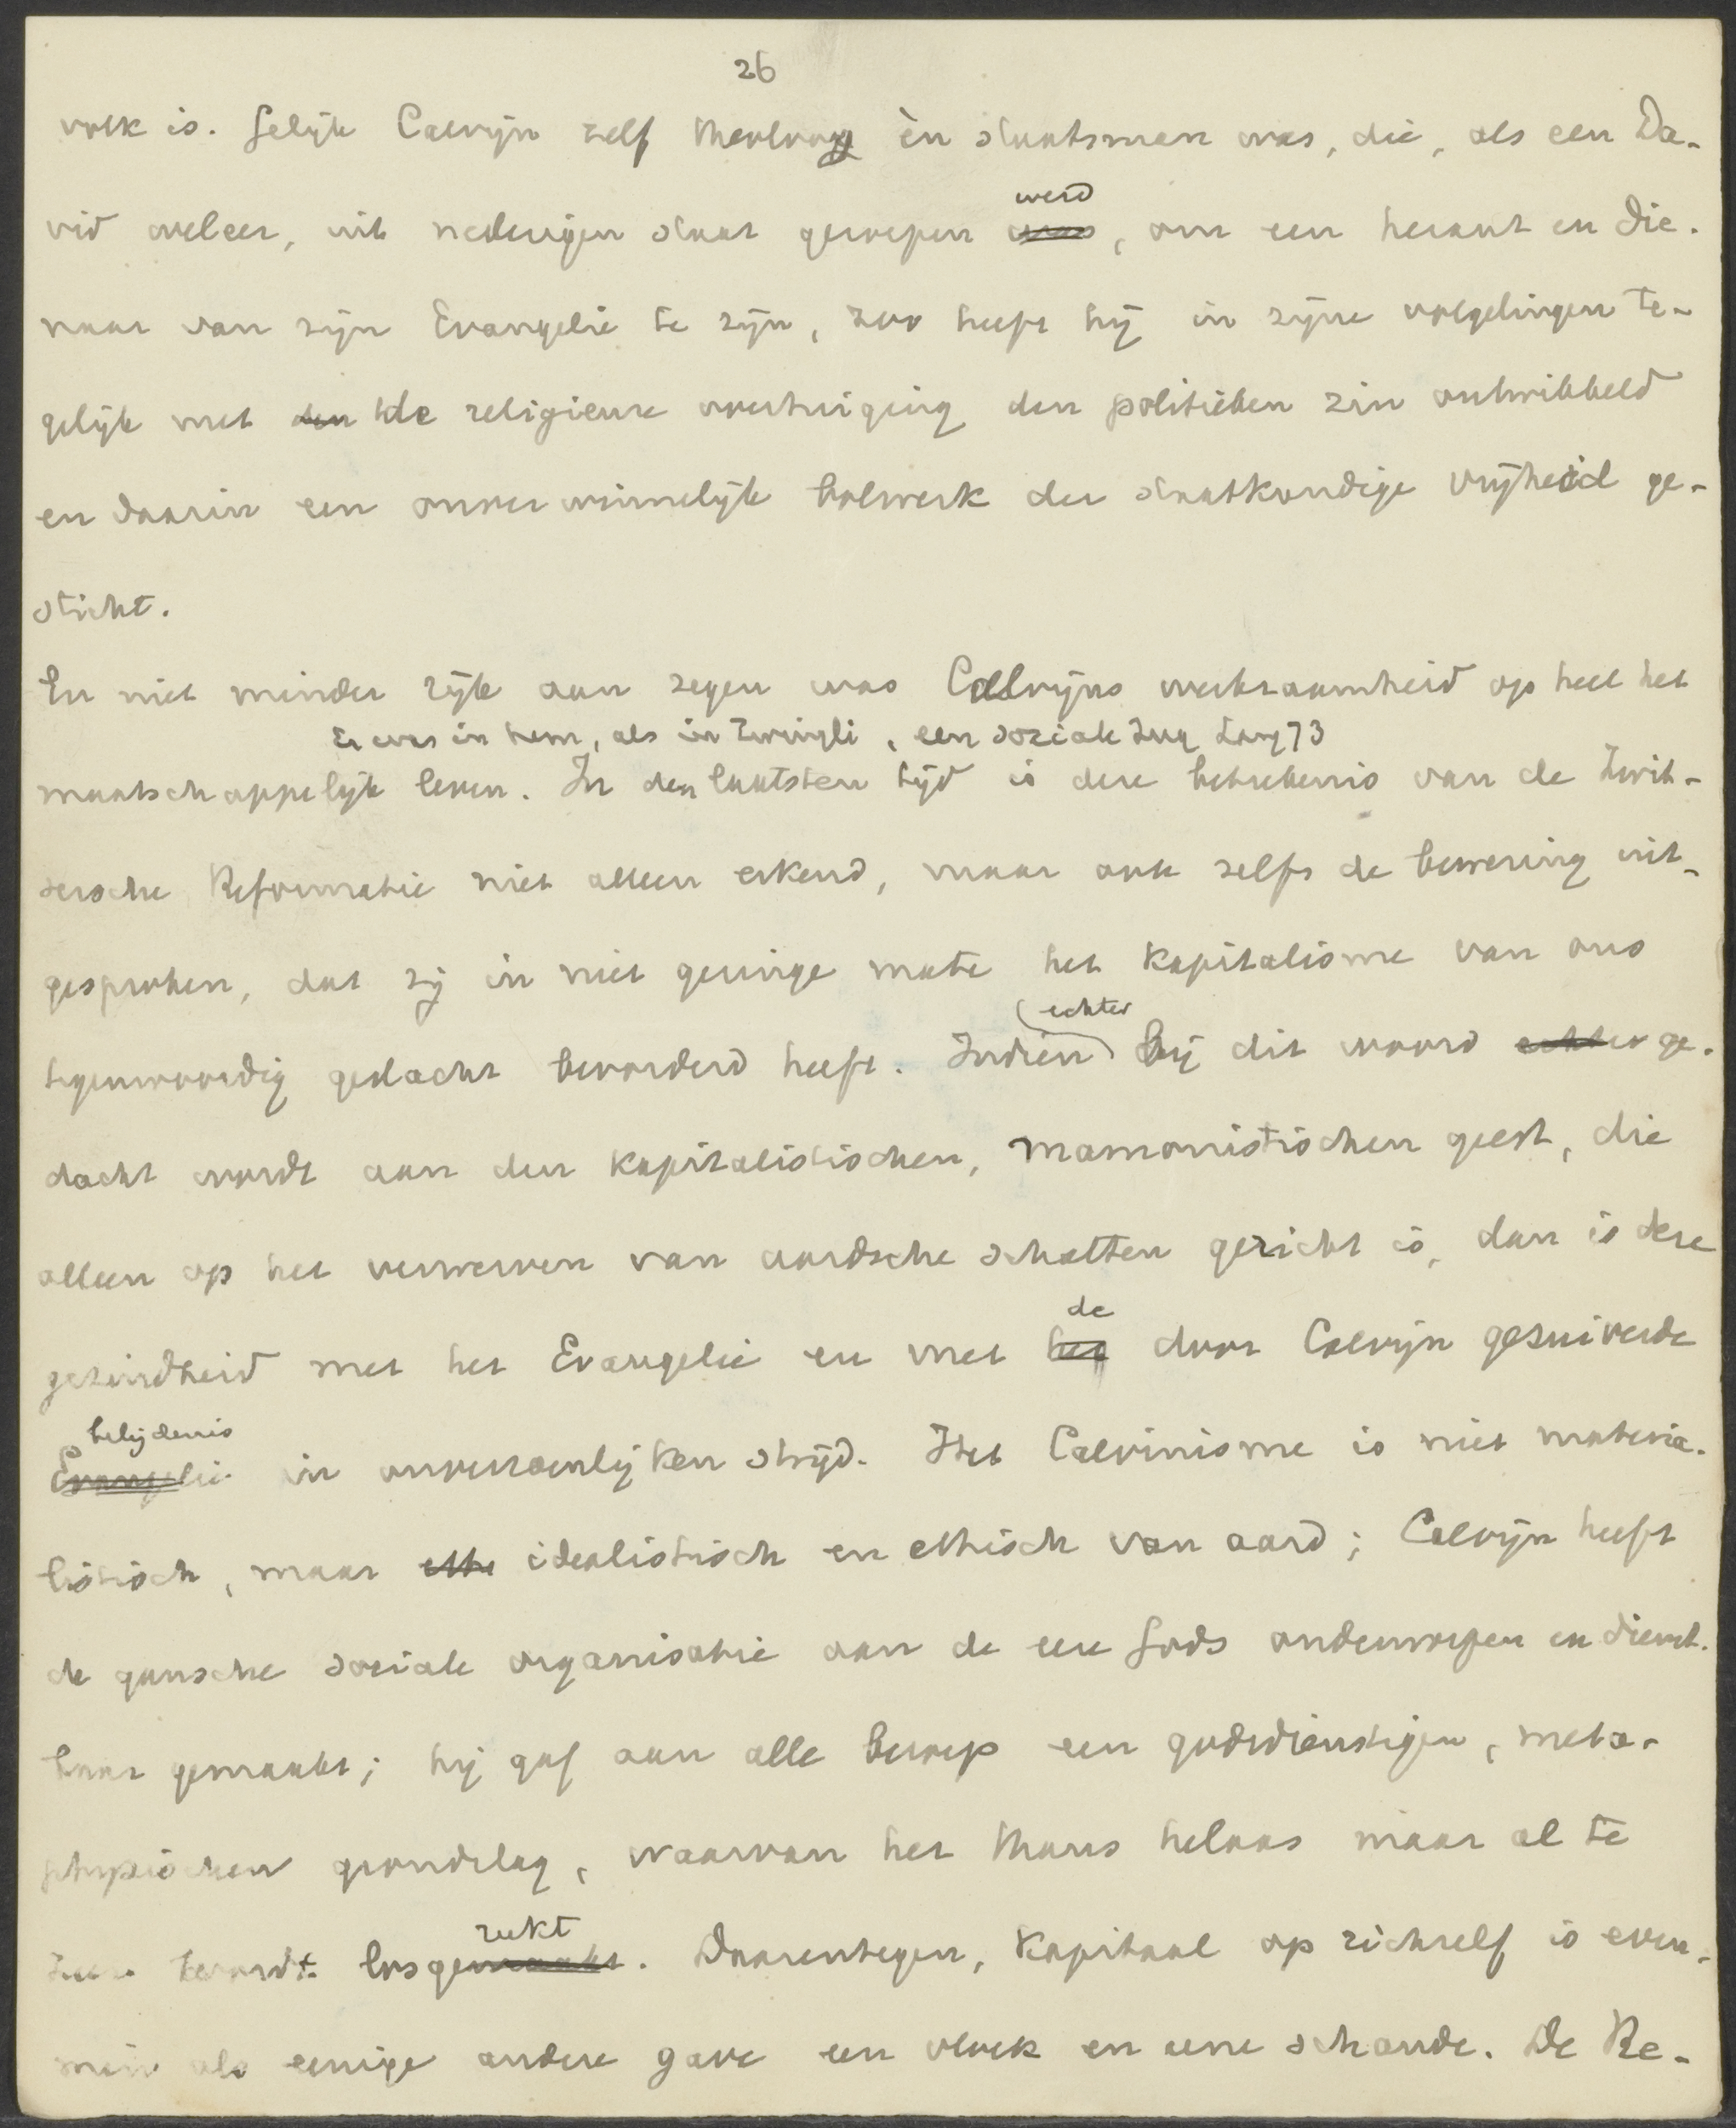 26
volk is. Gelijk Calvijn zelf theoloog èn staatsman was, die, als een Da-
werd
vid weleer, uit nederigen staat geroepen was, om een heraut en die-
naar van zijn Evangelie te zijn, zoo heeft hij in zijne volgelingen te-
gelijk met den de religieuse overtuiging den politieken zin ontwikkeld
en daarin een onverwinnelijk bolwerk der staatkundige vrijheid ge-
sticht.
En niet minder rijk aan zegen was Calvijns werkzaamheid op heel het
Er was in hem, als in Zwingli, een soziale Zug Lang 73
maatschappelijk leven. In den laatsten tijd is deze beteekenis van de Zwit-
sersche Reformatie niet alleen erkend, maar ook zelfs de bewering uit-
gesproken, dat zij in niet geringe mate het kapitalisme van ons
echter
tegenwoordig geslacht bevorderd heeft. Indien bij dit woord echter ge-
dacht wordt aan den kapitalistischen, mamonistischen geest, die
alleen op het verwerven van aardsche schatten gericht is, dan is deze
de
gezindheid met het Evangelie en met het door Calvijn gezuiverde
belijdenis
Evangelie in onverzoenlijken strijd. Het Calvinisme is niet materia-
listisch, maar ethi idealistisch en ethisch van aard; Calvijn heeft
de gansche sociale organisatie aan de eere Gods onderworpen en dienst-
baar gemaakt; hij gaf aan alle beroep een godsdienstigen, meta-
physischen grondslag, waarvan het thans helaas maar al te
rukt
zeer wordt losgemaakt. Daarentegen, kapitaal op zichzelf is even-
min als eenige andere gave een vloek en eene schande. De Re-